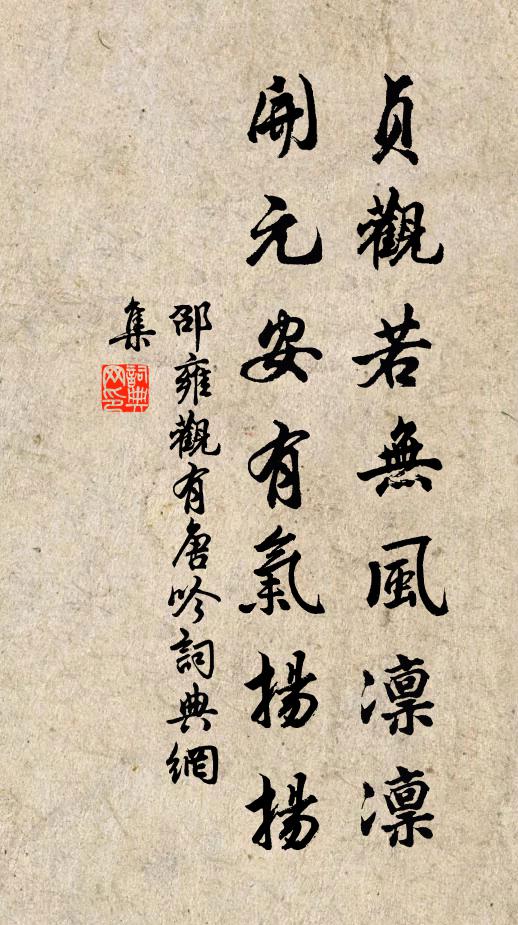 貞觀若無風凜凜
開元安有氣揚揚
邵雍觀有唐吟詞典網
集
詞典网印